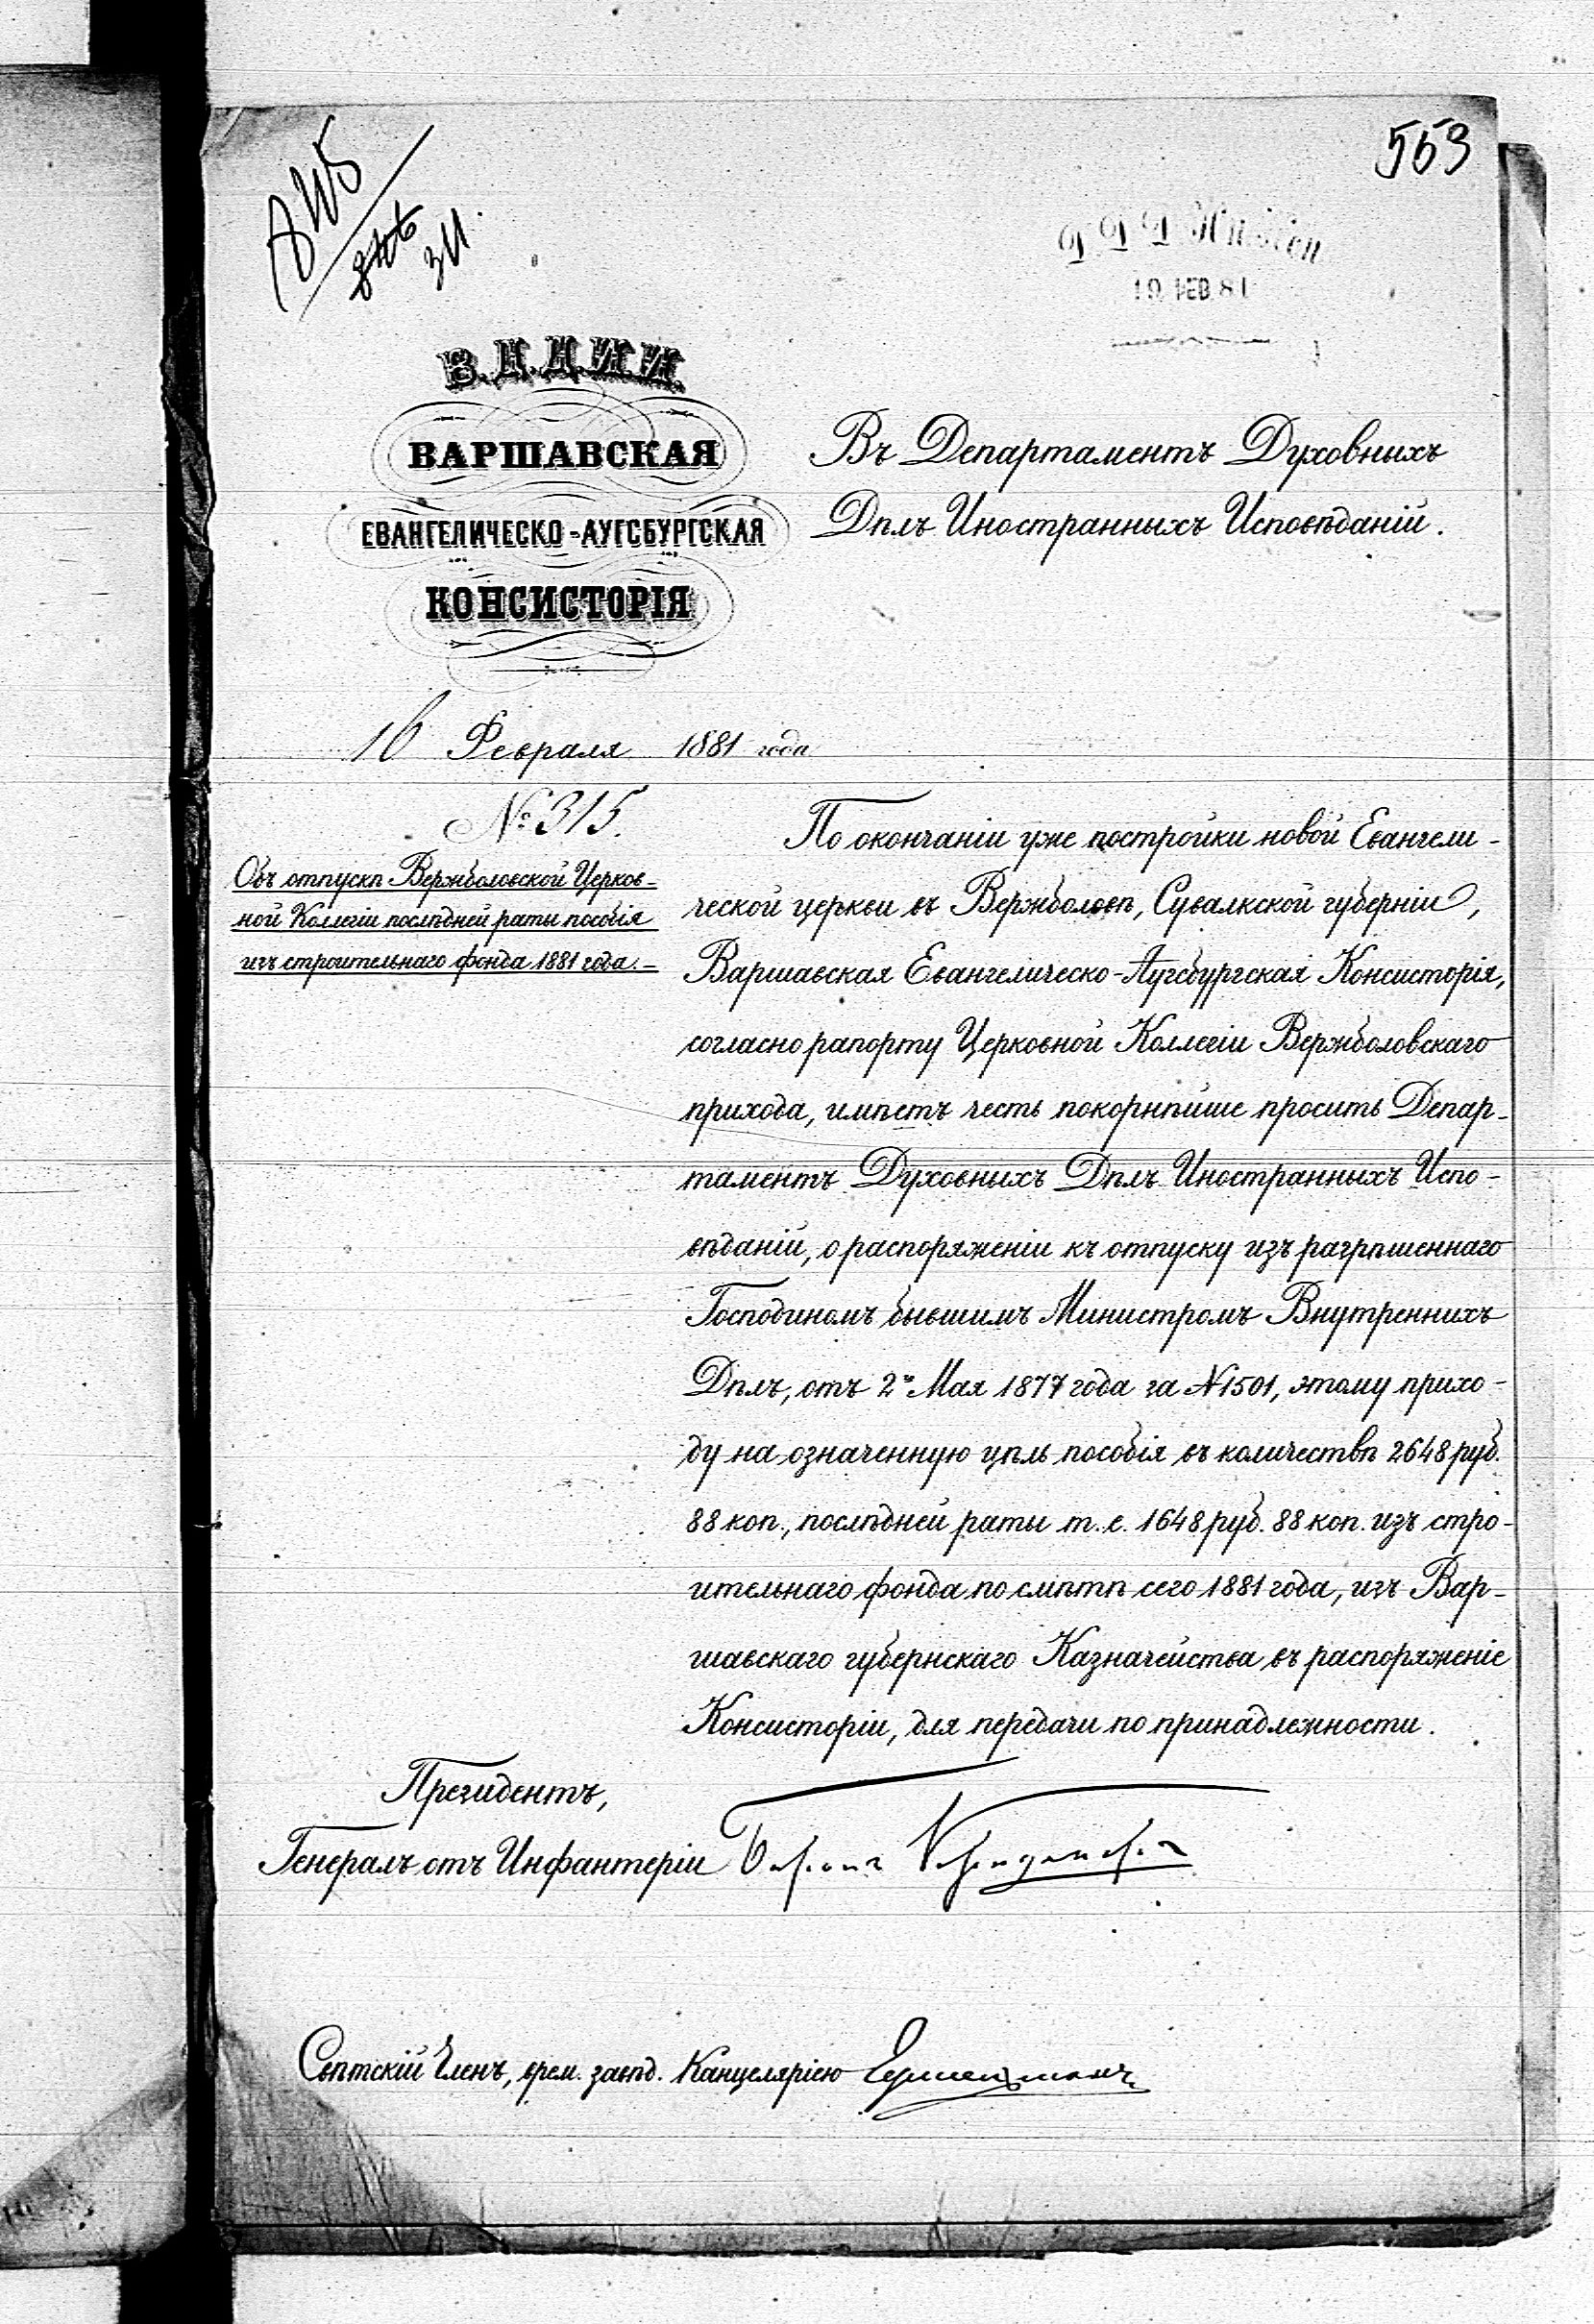 553
19 ФЕВ. 81
В.Д.Д.И.И.
ВАРШАВСКАЯ
ЕВАНГЕЛИЧЕСКО-АУГСБУРГСКАЯ
КОНСИСТОРІЯ
Въ Департаментъ Духовныхъ
Дѣлъ Иностранныхъ Исповѣданій.
16 Февраля 1881 года
№ 315.
Объ отпускѣ Вержболовской Церков-
ной Коллегіи послѣдней раты пособія
изъ строительнаго фонда 1881 года.-
По окончаніи уже постройки новой Евангели-
ческой церкви въ Вержболовѣ, Сувалкской губерніи,
Варшавская Евангелическо-Аугсбургская Консисторія,
согласно рапорту Церковной Коллегіи Вержболовскаго
прихода, имѣетъ честь покорнѣйше просить Депар-
таментъ Духовныхъ Дѣлъ Иностранныхъ Испо-
вѣданій, о распоряженіи къ отпуску изъ разрѣшеннаго
Господиномъ бывшимъ Министромъ Внутреннихъ
Дѣлъ, отъ 2го Мая 1877 года за № 1501, этому прихо-
ду на означенную цѣль пособія въ количествѣ 2648 руб.
88 коп., послѣдней раты т.е. 1648 руб. 88 коп. изъ стро-
ительнаго фонда по смѣтѣ сего 1881 года, изъ Вар-
шавскаго губернскаго Казначейства въ распоряженіе
Консисторіи, для передачи по принадлежности.
Президентъ,
Генералъ отъ Инфантеріи Баронъ
Свѣтскій Членъ, врем. завѣд. Канцеляріею